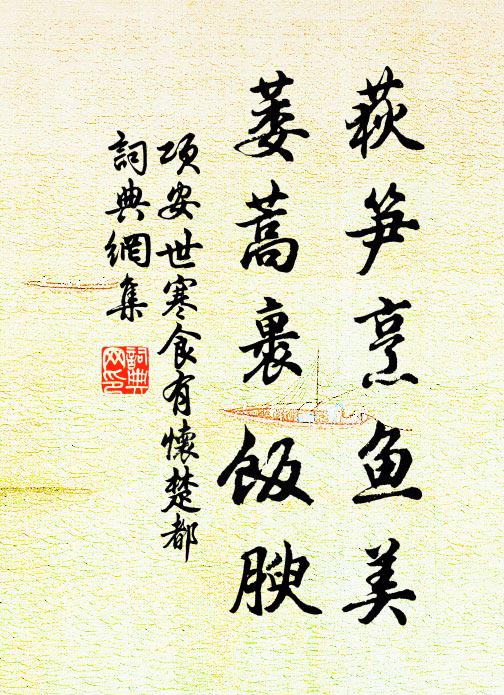 荻笋烹鱼美
蒌蒿裹飯腴
项安世寒食有懷楚都
詞典網集
詞典网印